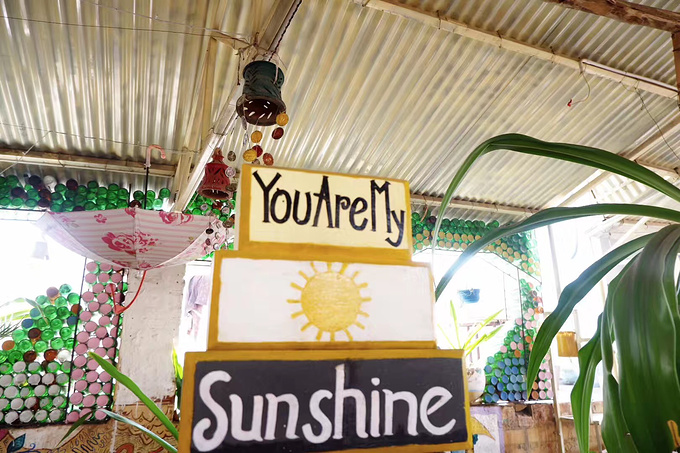 You Are My
Sunshine